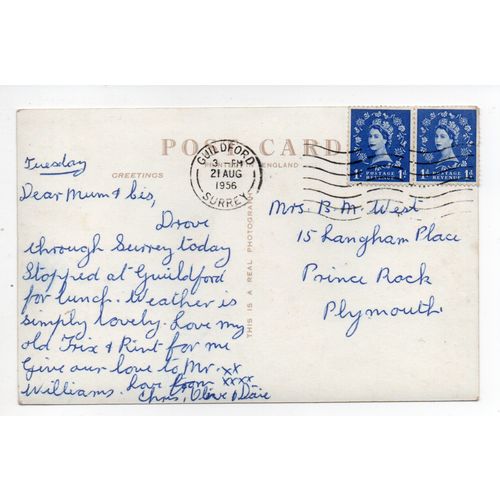 POST CARD
PRINTED IN ENGLAND
GREETINGS
THIS IS A REAL PHOTOGRAPH
GUILDFORD
3 - PM
21 AUG
1956
SURREY
1D POSTAGE REVENUE 1D
1D POSTAGE REVENUE 1D
Tuesday
Dear Mum & Cis,
Drove
through Surrey today
Stopped at Guildford
for lunch. Weather is
simply lovely. Love my
old Trix & Rint for me
Give our love to Mr.
Williams. Love from xx xxxx
Chris, Clive & Dave
Mrs. B. M. West
15 Langham Place
Prince Rock
Plymouth